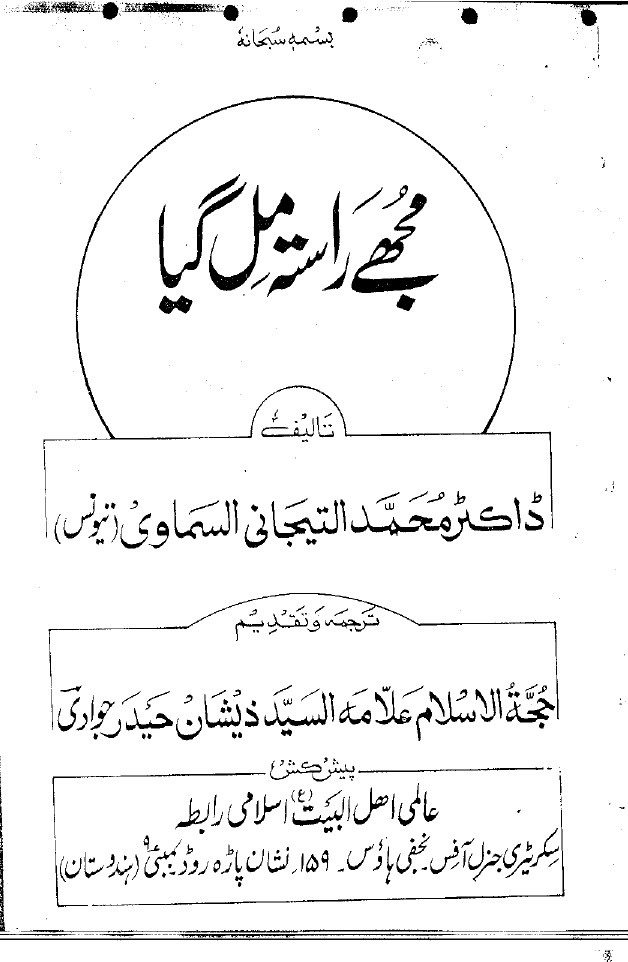 بسمہ سبحانہٗ
مُجھے رَاستہ مِل گیا
تالیف
ڈاکٹر مُحَمَّد التیجانی السَماوی (تیونس)
ترجمہ وَ تقدِیم
حُجَّۃُ الاِسْلام عَلاّمہ السیَّد ذیشان حَیدَر جوادیؔ
پیش کش
عالمی اھل البیتؑ اسلامی رابطہ
سکریٹری جنرل آفس ۔ نجفی ہاؤس ۔ ۱۵۹، نشان پاڑہ روڈ بمبئی ۹ (ہندوستان)